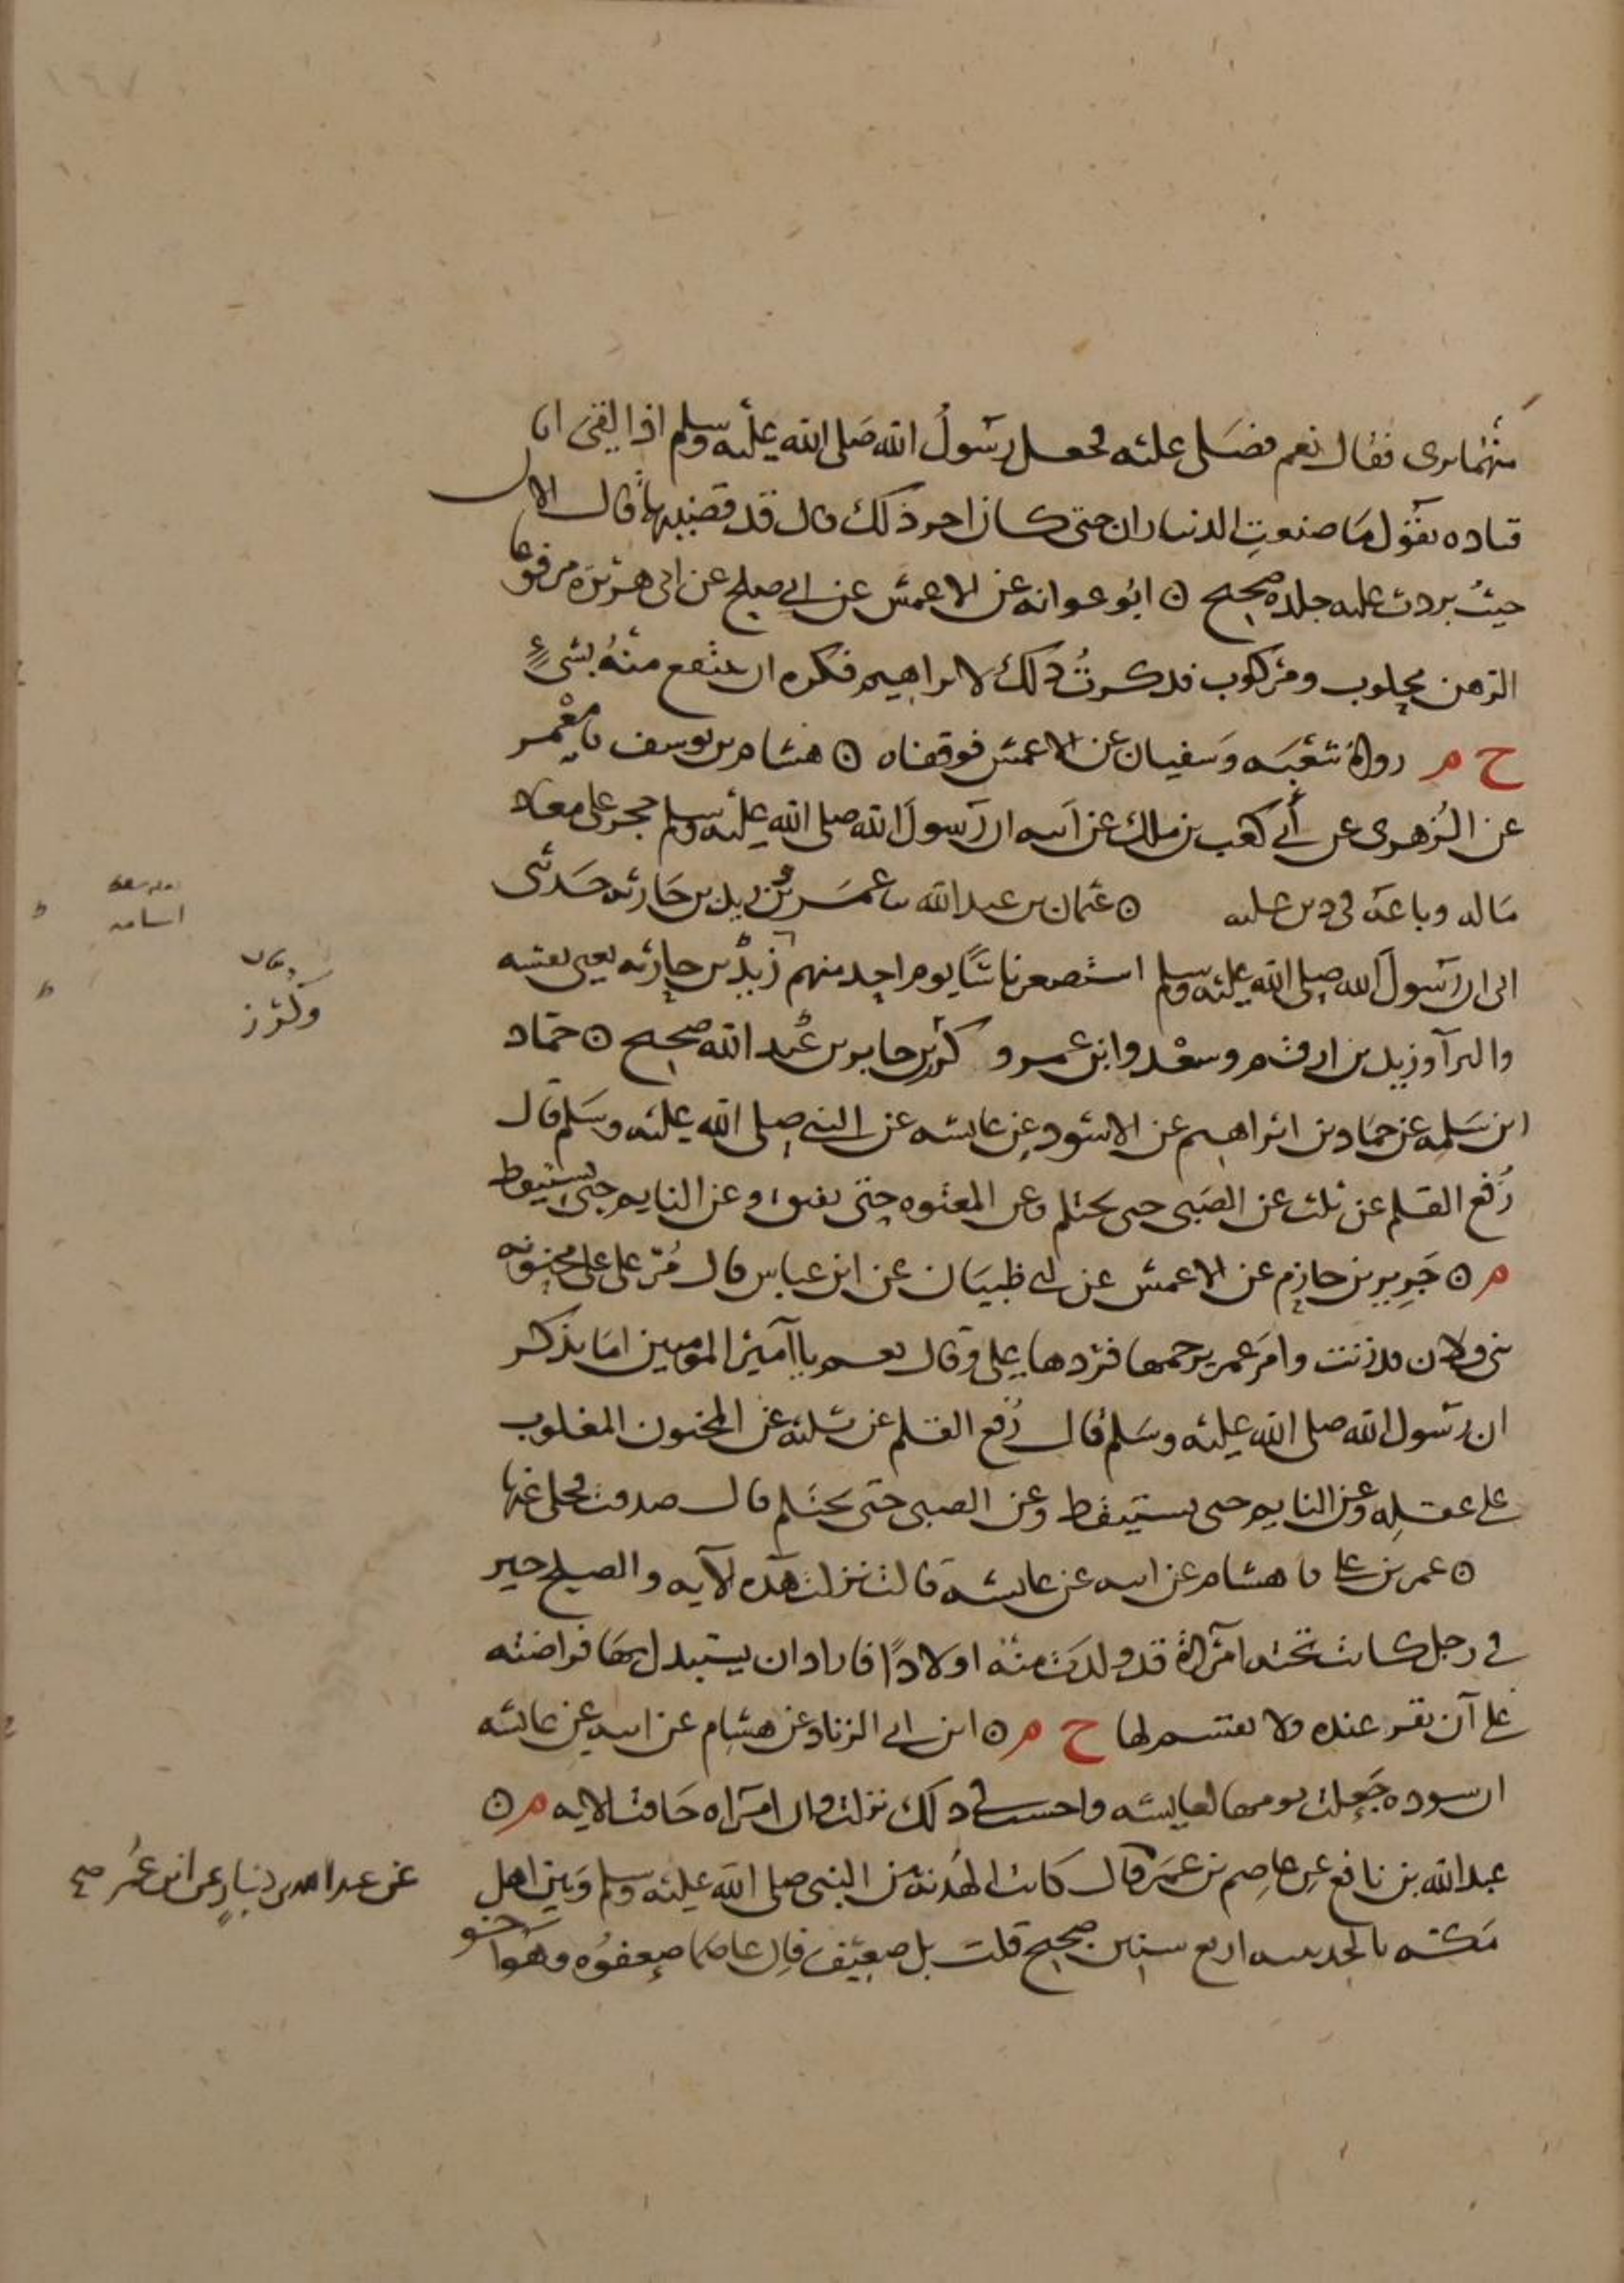 منهما بري فقال نعم فصلى عليه فجعل رسول الله صلى الله عليه وسلم اذا لقي ابا
قتاده يقول ما صنعت الديناران حتى كان اخر ذلك قال قد قضيتهما قال الان
حيث بردت عليه جلده صحيح ⊙ ابو عوانه عن الاعمش عن ابي صلح عن ابي هريرة مرفوعا
الرهن محلوب ومركوب فذكرت ذلك لابراهيم فكره ان ينتفع منه بشيء
خ م رواه شعبه وسفيان عن الاعمش فوقفاه ⊙ هشام بن يوسف نا معمر
عن الزهري عن ابن كعب بن ملك عن ابيه ان رسول الله صلى الله عليه وسلم حجر على معاذ
ماله وباعه في دين عليه ⊙ عثمان بن عبد الله نا عمر بن زيد بن حارثه حدثني
ابي ان رسول الله صلى الله عليه وسلم استصغر ناسا يوم احد منهم زيد بن حارثه يعني نفسه
والبرا وزيد بن ارقم وسعد وابن عمرو وجابر بن عبد الله صحيح ⊙ حماد
ابن سلمه عن حماد بن ابراهيم عن الاسود عن عايشه عن النبي صلى الله عليه وسلم قال
رفع القلم عن ثلث عن الصبي حتى يحتلم وعن المعتوه حتى يفيق وعن النايم حتى يستيقظ
م ⊙ جرير بن حازم عن الاعمش عن ابي ظبيان عن ابن عباس قال مر علي على مجنونه
بني فلان قد زنت وامر عمر برجمها فردها علي وقال لعمر يا امير المومنين اما تذكر
ان رسول الله صلى الله عليه وسلم قال رفع القلم عن ثلثه عن المجنون المغلوب
على عقله وعن النايم حتى يستيقظ وعن الصبي حتى يحتلم قال صدقت فخلى عنها
⊙ عمر بن علي نا هشام عن ابيه عن عايشه قالت نزلت هذه الآيه والصلح خير
في رجل كانت تحته امرأة قد ولدت منه اولادًا فاراد ان يستبدل بها فراضته
على أن تقر عنده ولا يقسم لها خ م ⊙ ابن ابي الزناد عن هشام عن ابيه عن عائشه
ان سوده جعلت يومها لعايشه واحسب في ذلك نزلت وان امراه خافت الايه م ⊙
عبد الله بن نافع عن عاصم بن عمر قال كانت الهدنة بين النبي صلى الله عليه وسلم وبين اهل
عن عبد الله بن دينار عن ابن عمر صح
مكه بالحديبيه اربع سنين صحيح قلت بل ضعيف فان عاصما ضعفوه وهو اخو